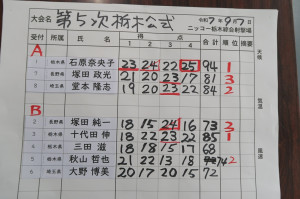 大会名 第5次栃木公式 令和7年9月7日
ニッコー栃木綜合射撃場
所属 氏名 得点 合計 順位 摘要
1 2 3 4
A
栃木県 石原奈央子 23 24 22 25 94 1
長野県 塚田政光 21 20 23 17 81 3
埼玉県 堂本隆志 19 20 23 22 84 2
B
長野県 塚田純一 18 15 24 16 73 3
栃木県 十代田伸 18 22 23 22 85 1
栃木県 三田滋 18 15 17 18 68
栃木県 秋山哲也 21 22 13 18 74 2
埼玉県 大野博美 17 20 20 15 72
天候
気温
風速